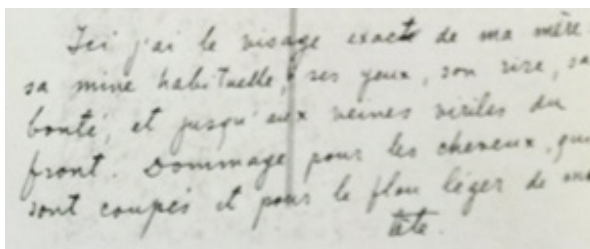 Ici j'ai le visage exact de ma mère
sa mine habituelle, ses yeux, son rire, sa
bonté, et jusqu'aux veines viriles du
front. Dommage pour les cheveux, qui
sont coupés et pour le flou léger de ma
tête.